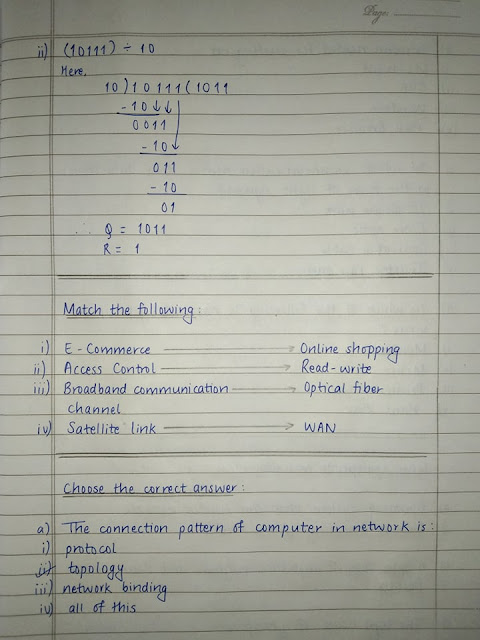 Page:
ii) (10111) ÷ 10
Here,
10)10111(1011
-10↓↓
0011
-10↓
011
-10
01
∴ Q = 1011
R = 1
Match the following:
i) E-Commerce → Online shopping
ii) Access Control → Read-write
iii) Broadband communication → Optical fiber
channel
iv) Satellite link → WAN
Choose the correct answer:
a) The connection pattern of computer in network is:
i) protocol
ii) topology
iii) network binding
iv) all of this